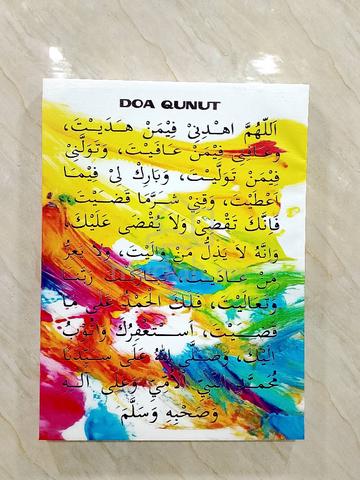 DOA QUNUT
اَللّٰهُمَّ اهْدِنِيْ فِيْمَنْ هَدَيْتَ،
وَعَافِنِيْ فِيْمَنْ عَافَيْتَ، وَتَوَلَّنِيْ
فِيْمَنْ تَوَلَّيْتَ، وَبَارِكْ لِيْ فِيْمَا
اَعْطَيْتَ، وَقِنِيْ شَرَّمَا قَضَيْتَ
فَاِنَّكَ تَقْضِيْ وَلاَ يُقْضَى عَلَيْكَ،
وَاِنَّهُ لاَ يَذِلُّ مَنْ وَالَيْتَ، وَلاَ يَعِزُّ
مَنْ عَادَيْتَ، تَبَارَكْتَ رَبَّنَا
وَتَعَالَيْتَ، فَلَكَ الْحَمْدُ عَلَى مَا
قَضَيْتَ، اَسْتَغْفِرُكَ وَاَتُوْبُ
اِلَيْكَ، وَصَلَّى اللهُ عَلَى سَيِّدِنَا
مُحَمَّدٍ النَّبِيِّ الْاُمِّيِّ وَعَلَى اٰلِهِ
وَصَحْبِهِ وَسَلَّمَ